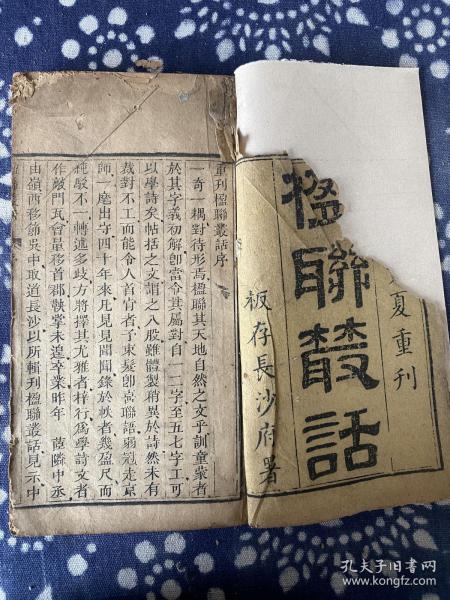 夏重刊
楹聯叢話
板存長沙府署
重刊楹聯叢話序
一奇一耦對待形焉楹聯其天地自然之文乎訓童蒙者
於其字義初解卽當令其屬對自一二字至五七字工可
以學詩矣帖括之文謂之八股雖體製稍異於詩然未有
裁對不工而能令人首肯者予束髮卽喜聯語弱冠走京
師一麾出守四十年來凡見見聞聞錄於帙者幾盈尺而
純駁不一轉近多歧方將擇其尤雅者梓行爲學詩文者
作敲門瓦會量移首郡執掌未遑卒業昨年 茝隣中丞
由嶺西移節吳中取道長沙以所輯刊楹聯叢話見示中
孔夫子旧书网
www.kongfz.com